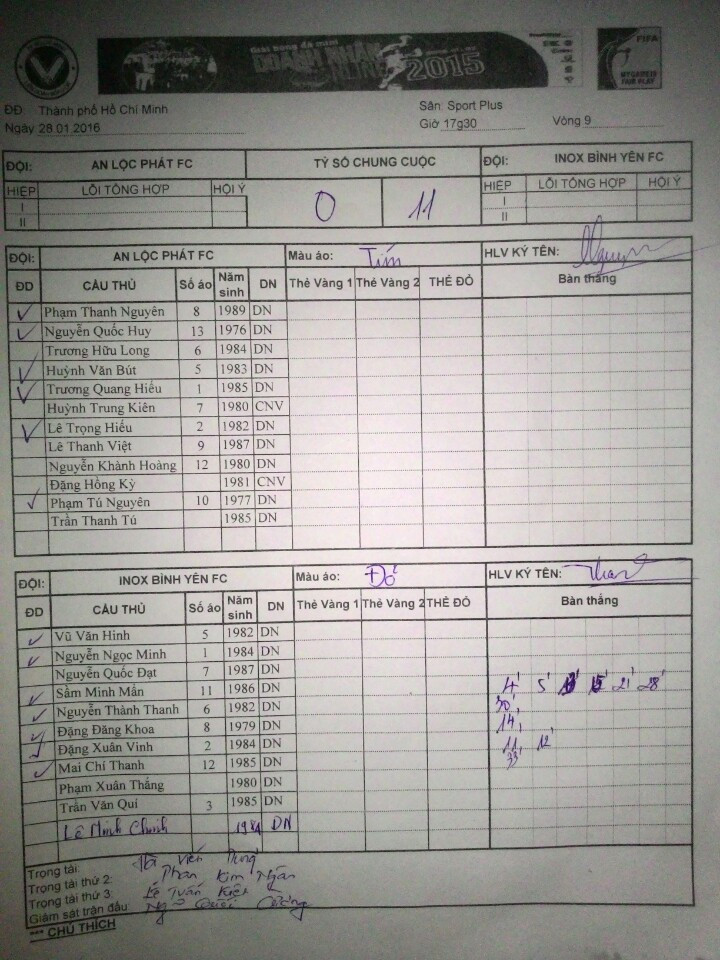 Giải bóng đá mini
DOANH NHÂN
2015
FIFA
MY GAME IS
FAIR PLAY
ĐĐ: Thành phố Hồ Chí Minh
Sân: Sport Plus
Ngày 28.01 2016
Giờ 17g30 Vòng 9
ĐỘI: AN LỘC PHÁT FC TỶ SỐ CHUNG CUỘC ĐỘI: INOX BÌNH YÊN FC
HIỆP LỖI TỔNG HỢP HỘI Ý 0 11 HIỆP LỖI TỔNG HỢP HỘI Ý
I I
II II
ĐỘI: AN LỘC PHÁT FC Màu áo: Tím HLV KÝ TÊN:
ĐD CẦU THỦ Số áo Năm sinh DN Thẻ Vàng 1 Thẻ Vàng 2 THẺ ĐỎ Bàn thắng
Phạm Thanh Nguyên 8 1989 DN
Nguyễn Quốc Huy 13 1976 DN
Trương Hữu Long 6 1984 DN
Huỳnh Văn Bút 5 1983 DN
Trương Quang Hiếu 1 1985 DN
Huỳnh Trung Kiên 7 1980 CNV
Lê Trọng Hiếu 2 1982 DN
Lê Thanh Việt 9 1987 DN
Nguyễn Khành Hoàng 12 1980 DN
Đặng Hồng Kỳ 1981 CNV
Phạm Tú Nguyên 10 1977 DN
Trần Thanh Tú 1985 DN
ĐỘI: INOX BÌNH YÊN FC Màu áo: Đỏ HLV KÝ TÊN:
ĐD CẦU THỦ Số áo Năm sinh DN Thẻ Vàng 1 Thẻ Vàng 2 THẺ ĐỎ Bàn thắng
Vũ Văn Hinh 5 1982 DN
Nguyễn Ngọc Minh 1 1984 DN
Nguyễn Quốc Đạt 7 1987 DN
Sầm Minh Mẫn 11 1986 DN 4' 5' 21' 28'
Nguyễn Thành Thanh 6 1982 DN 30'
Đặng Đăng Khoa 8 1979 DN 14'
Đặng Xuân Vinh 2 1984 DN 11' 12'
Mai Chí Thanh 12 1985 DN 33'
Phạm Xuân Thắng 1980 DN
Trần Văn Quí 3 1985 DN
Lê Minh Chinh 1984 DN
Trọng tài: Hà Viến
Trọng tài thứ 2: Phan Kim Ngân
Trọng tài thứ 3: Lê Tuấn Kiệt
Giám sát trận đấu: Ngô Quốc Cường
*** CHÚ THÍCH